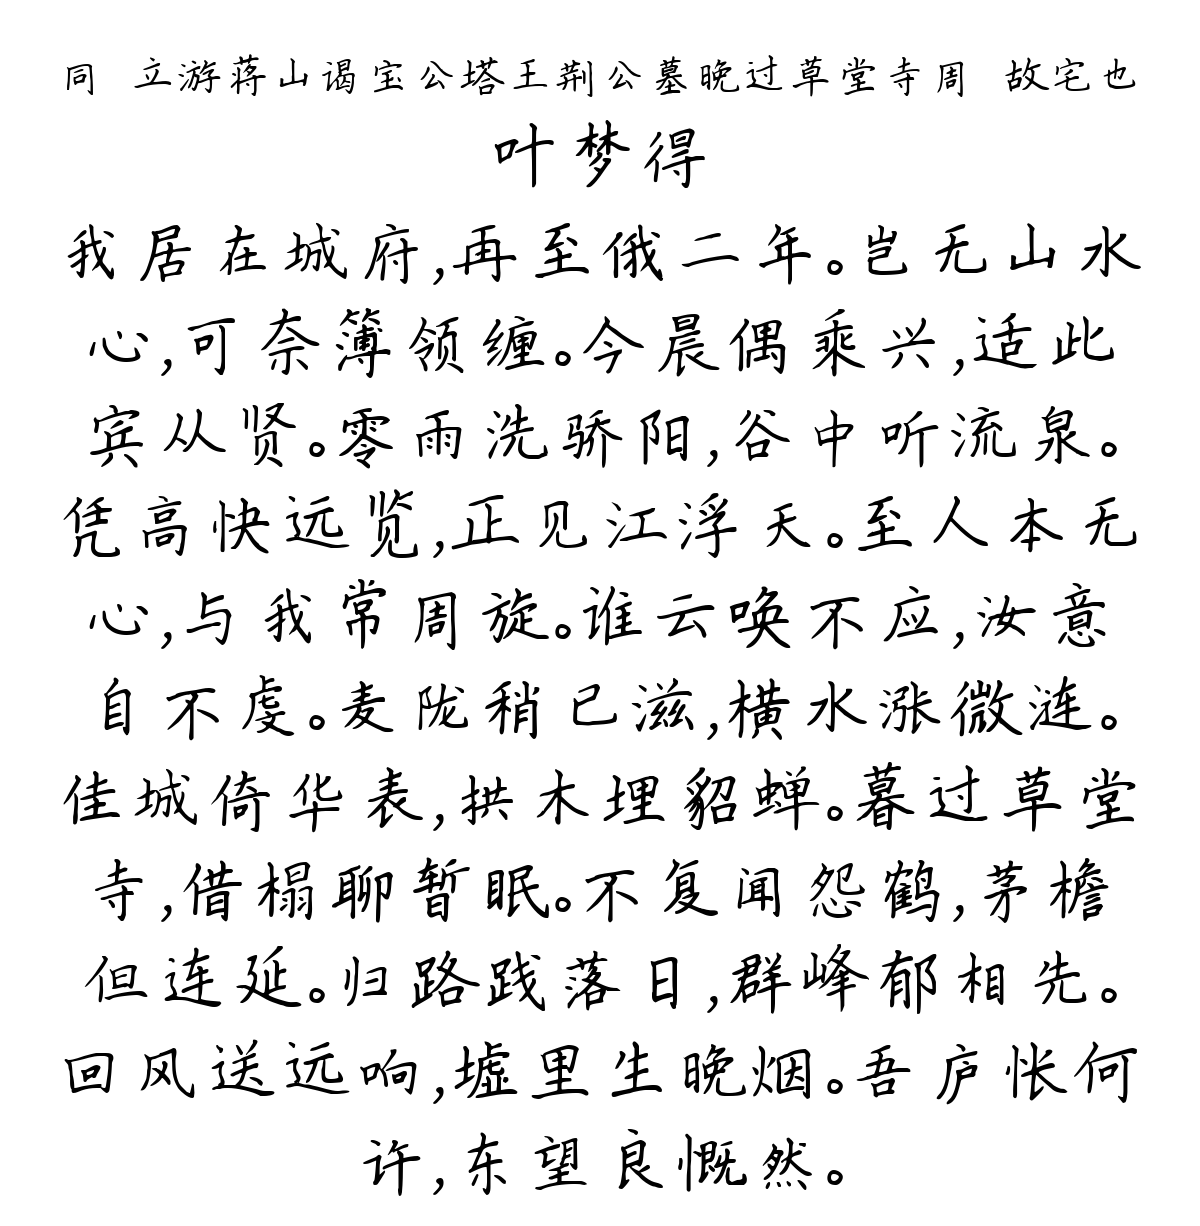 同 立游蒋山谒宝公塔王荆公墓晚过草堂寺周 故宅也
叶梦得
我居在城府,再至俄二年。岂无山水
心,可奈簿领缠。今晨偶乘兴,适此
宾从贤。零雨洗骄阳,谷中听流泉。
凭高快远览,正见江浮天。至人本无
心,与我常周旋。谁云唤不应,汝意
自不虔。麦陇稍已滋,横水涨微涟。
佳城倚华表,拱木埋貂蝉。暮过草堂
寺,借榻聊暂眠。不复闻怨鹤,茅檐
但连延。归路践落日,群峰郁相先。
回风送远响,墟里生晚烟。吾庐怅何
许,东望良慨然。